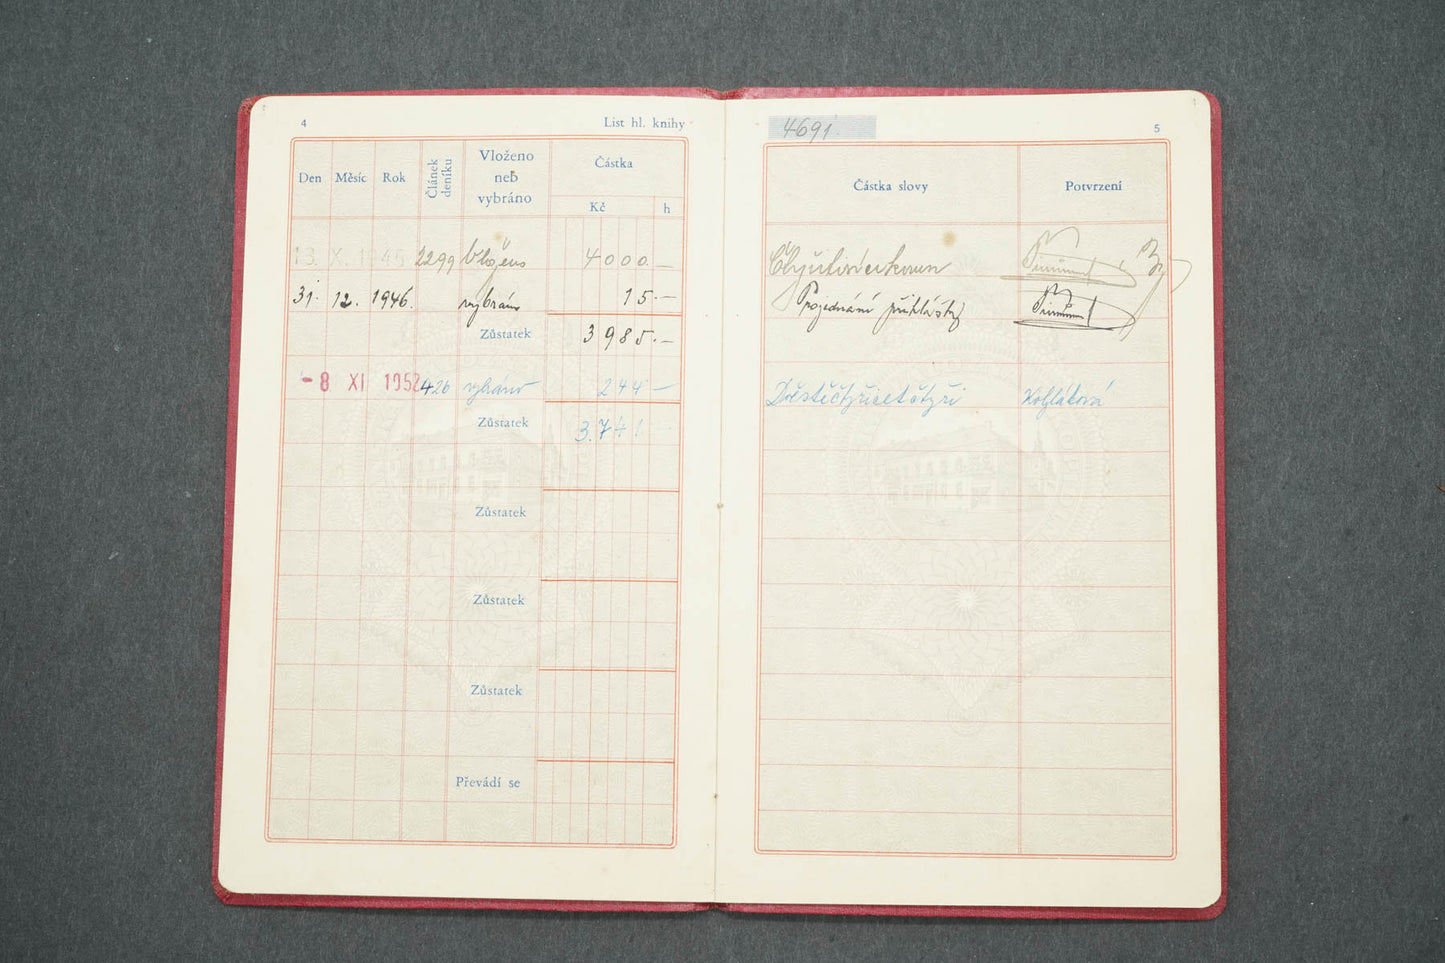 4 List hl. knihy
Den Měsíc Rok Článek deníku Vloženo neb vybráno Částka
Kč h
13. X. 1945 2299 Vloženo 4000.—
31. 12. 1946. vybráno 15.—
Zůstatek 3985.—
-8 XI 1952 426 vybráno 244 —
Zůstatek 3.741
Zůstatek
Zůstatek
Zůstatek
Převádí se
4691. 5
Částka slovy Potvrzení
Čtyřitisíce korun
Projednání přihlášky
Dvěstěčtyřicetčtyři